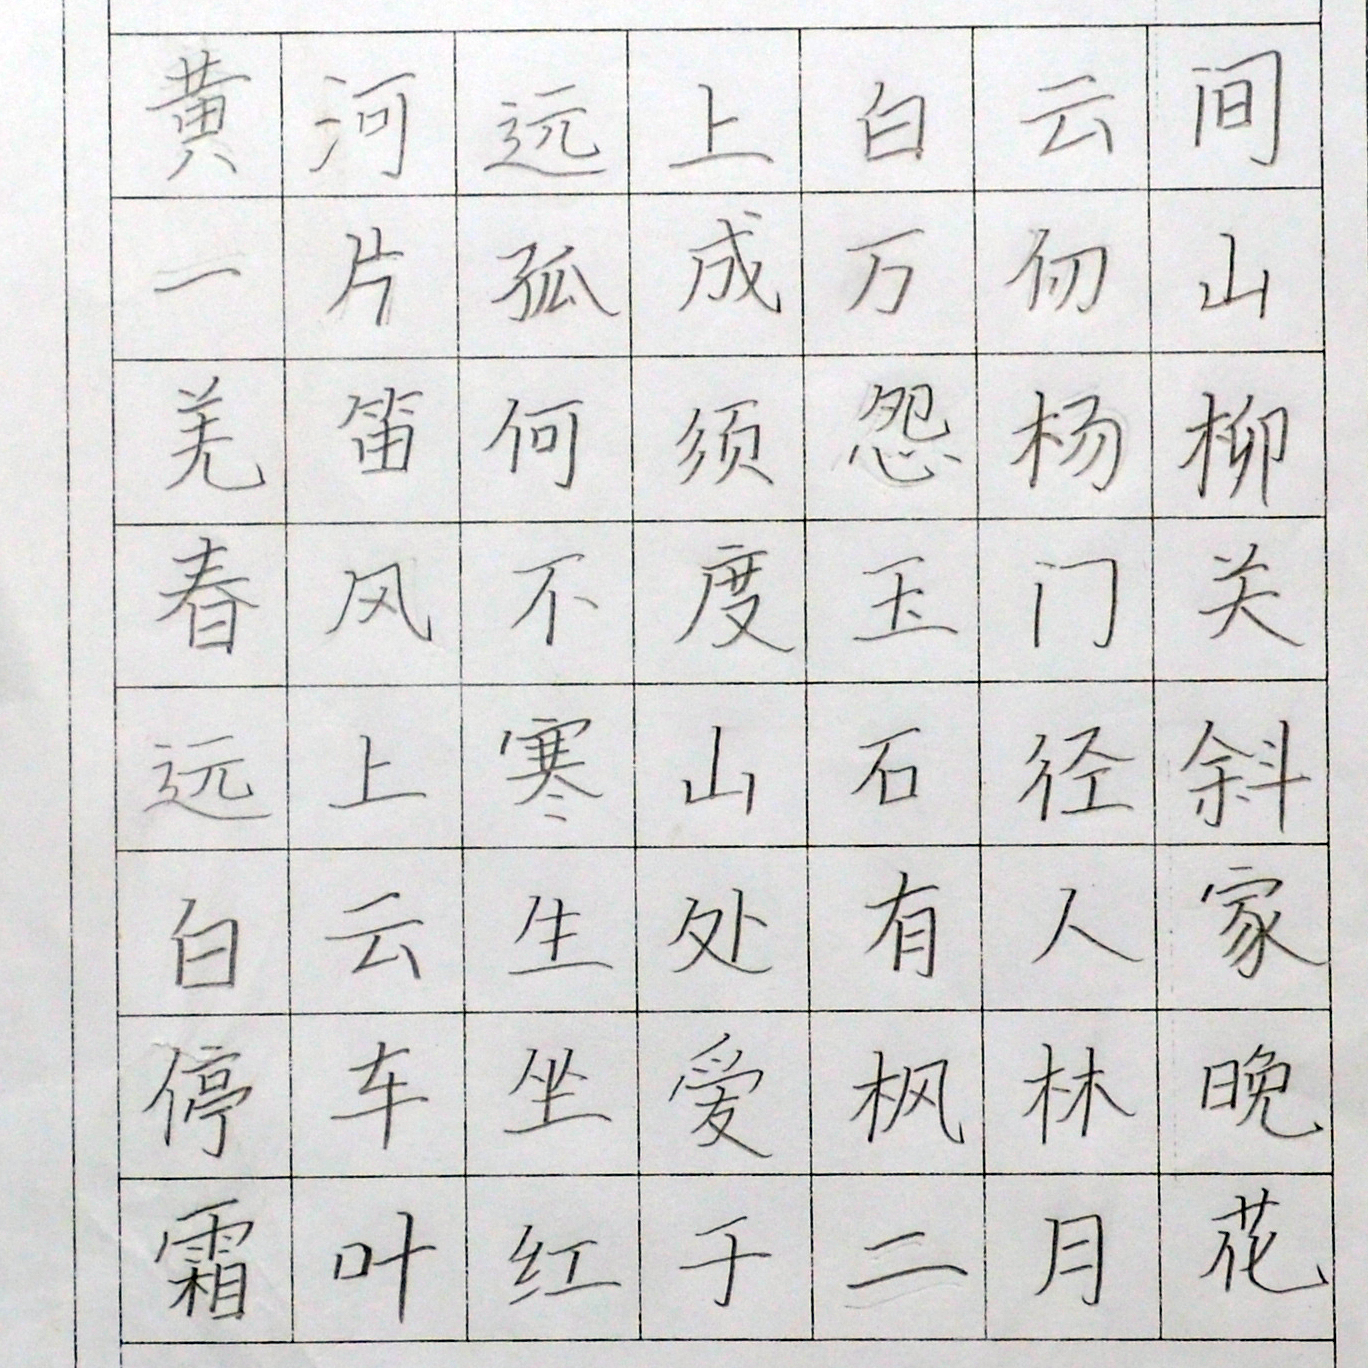 黄河远上白云间
一片孤成万仞山
羌笛何须怨杨柳
春风不度玉门关
远上寒山石径斜
白云生处有人家
停车坐爱枫林晚
霜叶红于二月花